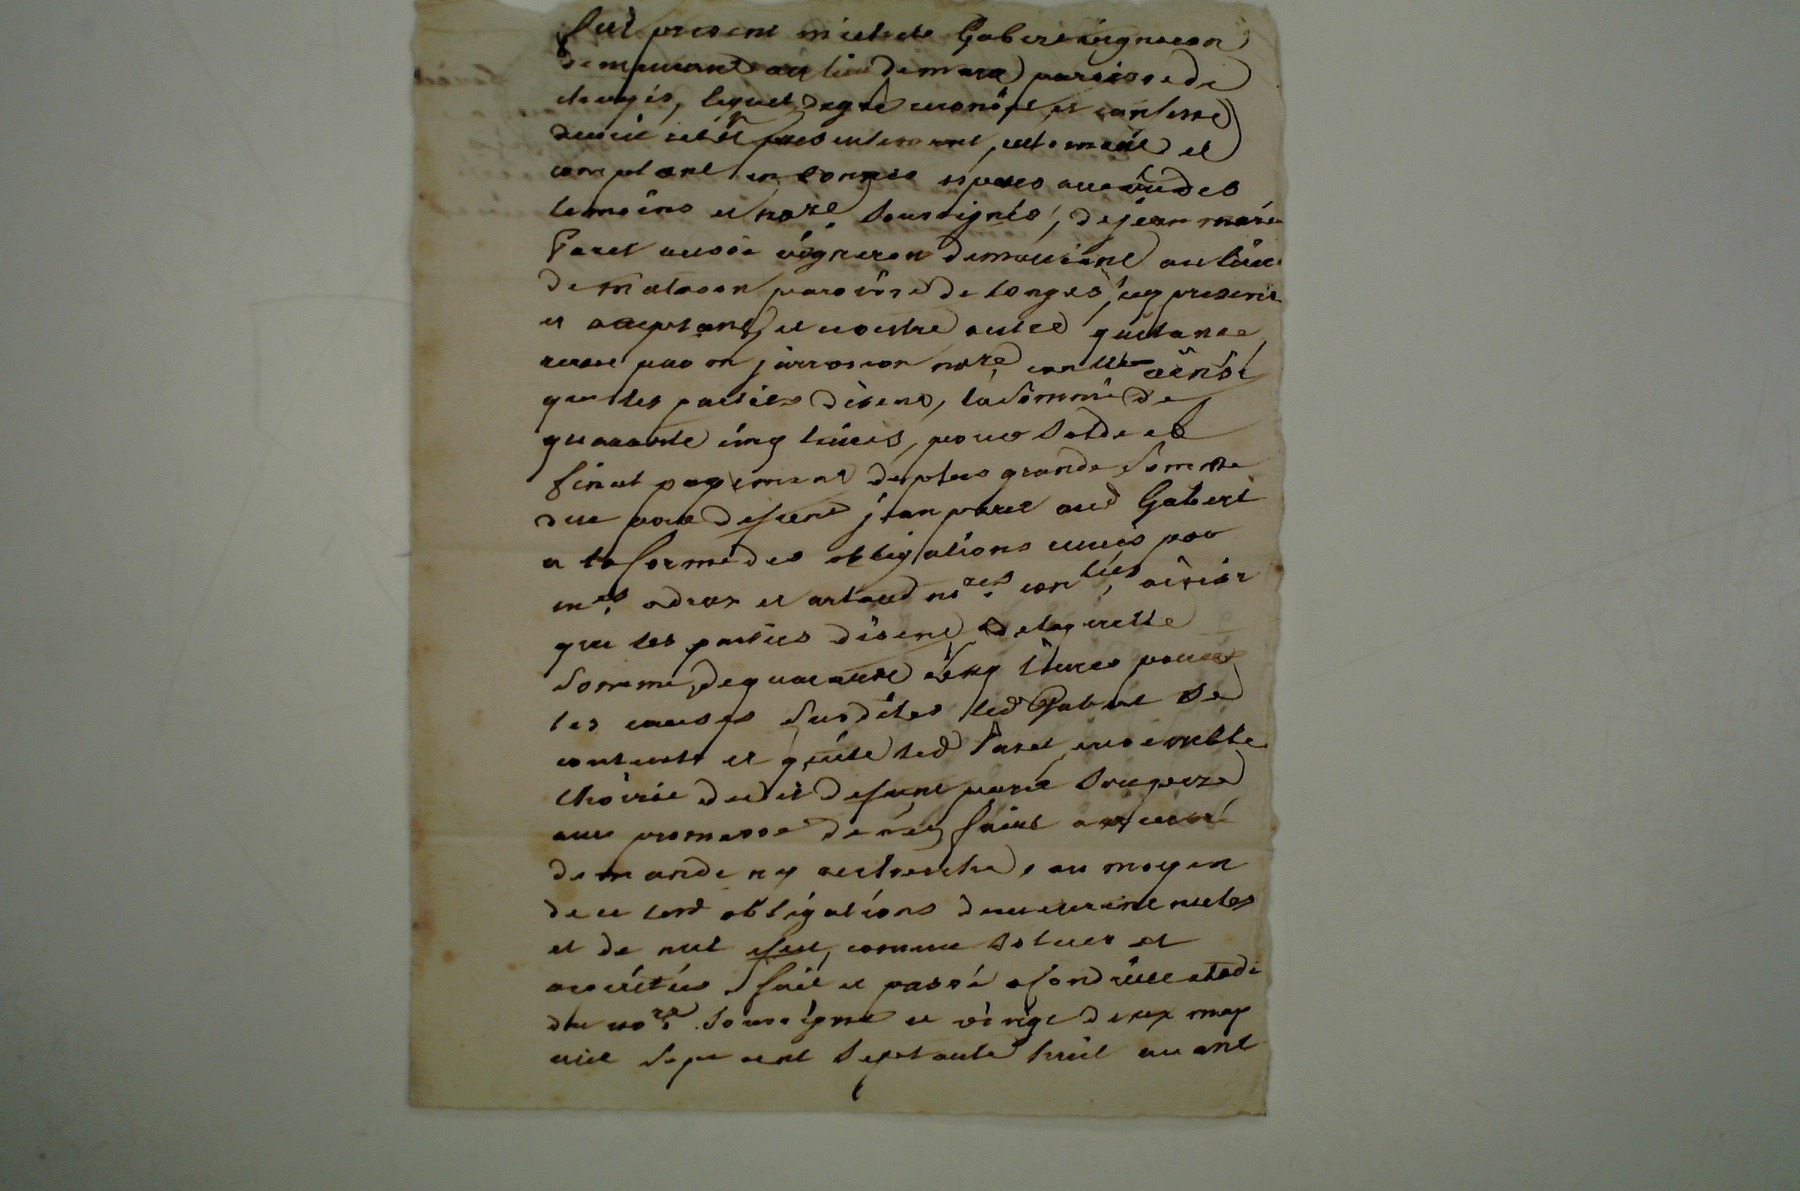 fut présent michele Gabert vigneron
demeurant au lieu de mara paroisse de
chuyés, lequel de gré reconoît et confesse
avoir reçû presentement, réelement et
comptant en bonnes espèces au vû des
temoins et no.re soussignés, de jean marie
Paret aussi vigneron demeurant au lieu
de matason paroisse de Longes, icy present
et acceptant, et ce outre autre quitance
reçue par m jurossion no.re ainsi
que les parties disent, la somme de
quarante cinq livres, pour solde et
final payement de plus grande somme
due par defunt jean paret aud Gabert
a la forme des obligations reçues par
m.es odras et artaud no.res ainsi
que les parties disent de laquelle
somme de quarante cinq livres pour
les causes susdites led Gabert se
contente et quite led Paret, ensemble
l'hoirie dudit defunt paret son pere
avec promesse de n'en faire aucune
demande ny recherche, au moyen
de ce lesd obligations demeurent nules
et de nul effet, comme solues et
acquitées, fait et passé a fondrieu etude
du no.re soussigné ce vingt deux may
mil sept cent septante huit avant